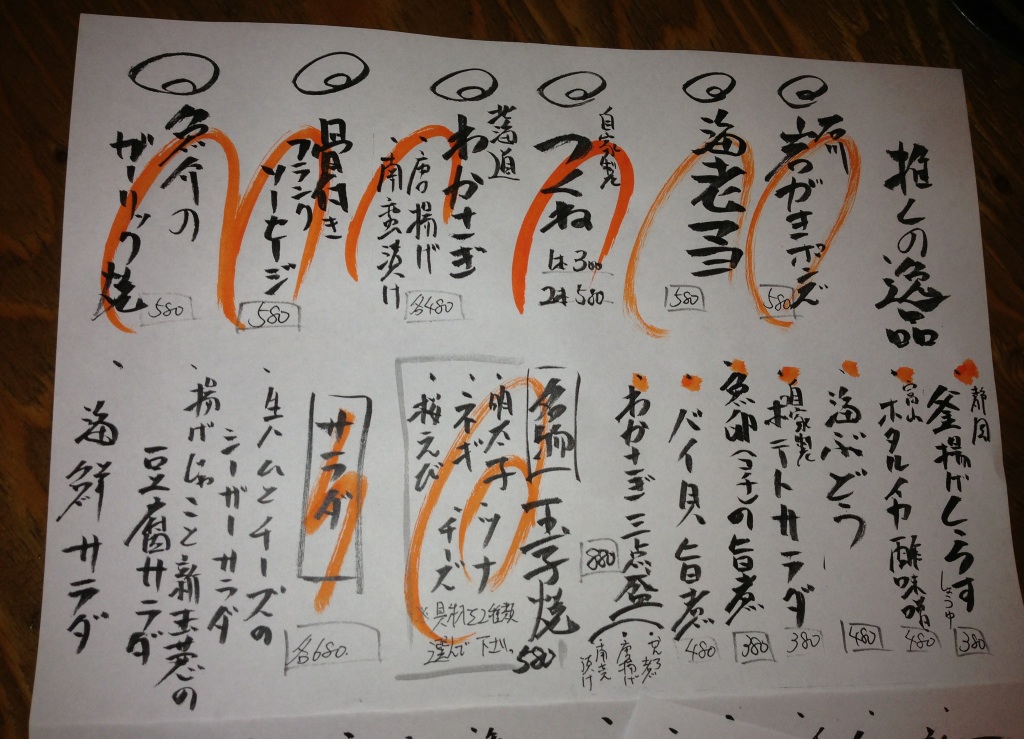 推しの逸品
岩がきポンズ
580
海老マヨ
580
自家製
つくね
1本 300
2本 580
北海道
わかさぎ
・唐揚げ
・南蛮漬け
各480
骨付き
フランク
ソーセージ
580
魚介の
ガーリック焼
580
静岡
釜揚げしらす
380
富山
ホタルイカ酢味噌
480
海ぶどう
480
自家製
ポテトサラダ
380
魚卵(マチ)の旨煮
380
バイ貝旨煮
480
わかさぎ三点盛
・唐揚げ
・南蛮漬け
880
名物 玉子焼
580
・明太子 ツナ
・ネギ チーズ
・桜えび
※具材を2種類
選んで下さい。
サラダ
各680
・生ハムとチーズの
シーザーサラダ
・揚げじゃこと新玉葱の
豆腐サラダ
・海鮮サラダ